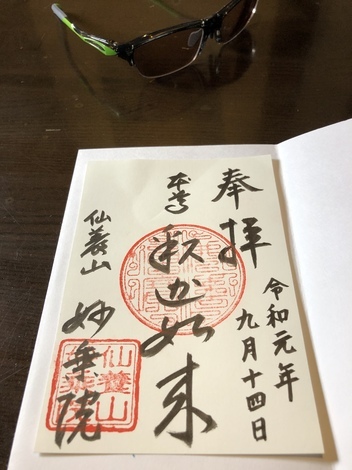 奉拝
令和元年
九月十四日
本尊
釈迦如来
仙養山
妙乗院